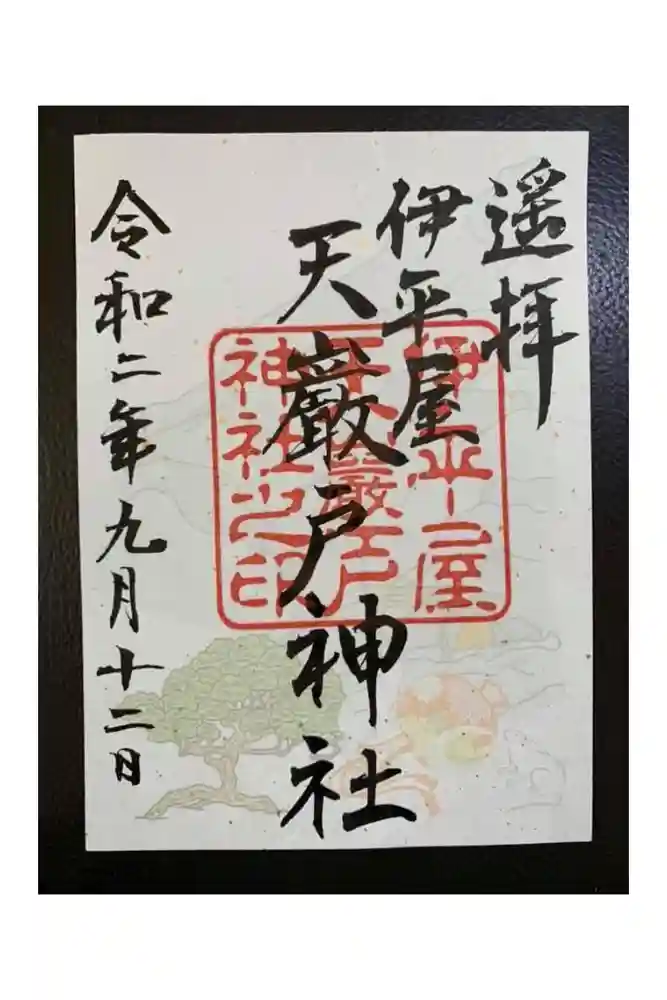 遥拝
伊平屋
天巖戸神社
伊平屋
天巖戸
神社之印
令和二年九月十二日